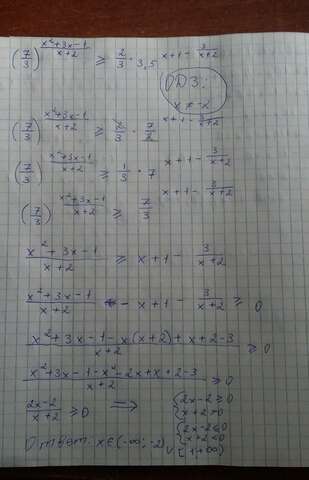 (7/3)^((x²+3x-1)/(x+2)) ≥ 2/3 · 3,5^(x+1-3/(x+2))
ОДЗ:
x ≠ -2
(7/3)^((x²+3x-1)/(x+2)) ≥ 2/3 · 7/2^(x+1-3/(x+2))
(7/3)^((x²+3x-1)/(x+2)) ≥ 1/3 · 7^(x+1-3/(x+2))
(7/3)^((x²+3x-1)/(x+2)) ≥ 7/3^(x+1-3/(x+2))
(x²+3x-1)/(x+2) ≥ x+1-3/(x+2)
(x²+3x-1)/(x+2) - x+1-3/(x+2) ≥ 0
(x²+3x-1-x(x+2)+x+2-3)/(x+2) ≥ 0
(x²+3x-1-x²-2x+x+2-3)/(x+2) ≥ 0
(2x-2)/(x+2) ≥ 0 ⟹ {2x-2 ≥ 0
{x+2 > 0
{2x-2 ≤ 0
{x+2 < 0
Ответ. x∈(-∞; -2)∪[1+∞)